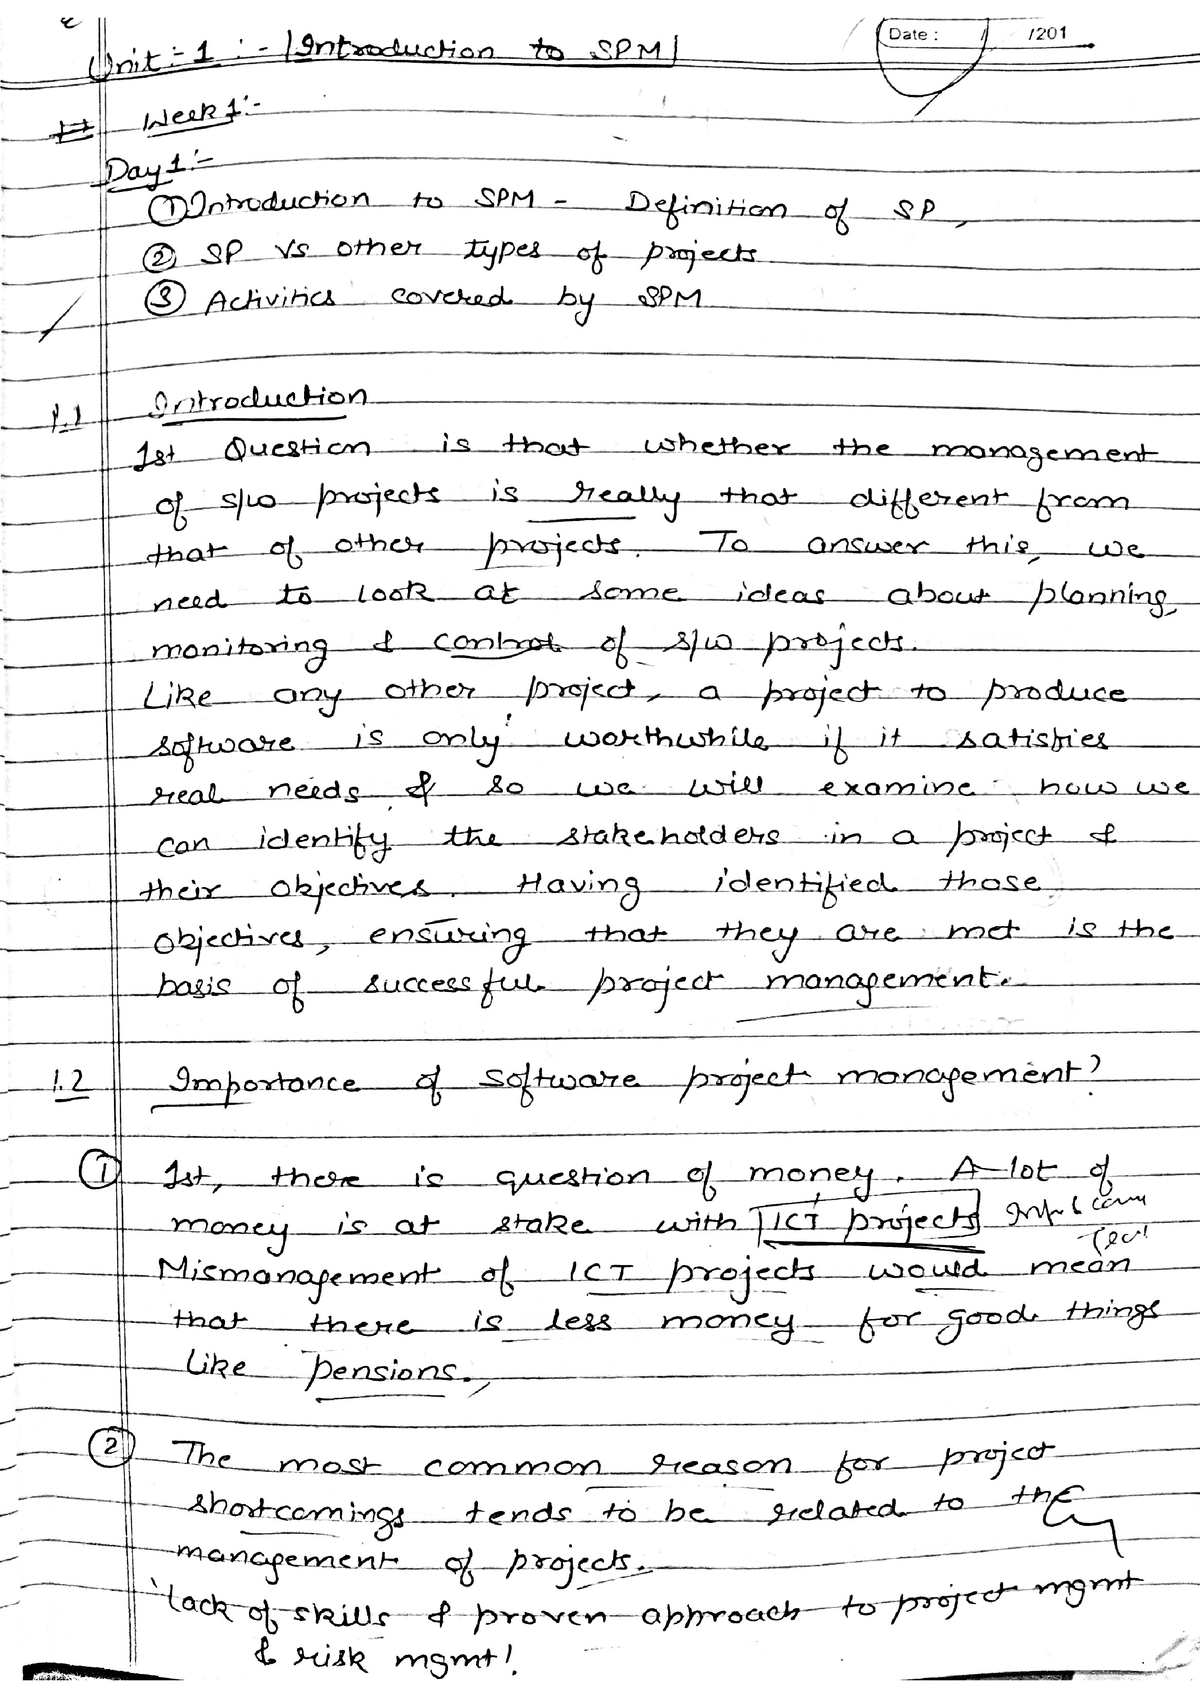 Unit:-1 :- |Introduction to SPM|
Date : / /201
# Week 1:-
Day 1:-
① Introduction to SPM - Definition of SP,
② SP vs other types of projects
③ Activities covered by SPM
1.1 Introduction
1st Question is that whether the management
of s/w projects is really that different from
that of other projects. To answer this, we
need to look at some ideas about planning,
monitoring & control of s/w projects.
Like any other project, a project to produce
software is only worthwhile if it satisfies
real needs & so we will examine how we
can identify the stakeholders in a project &
their objectives. Having identified those
objectives, ensuring that they are met is the
basis of successful project management.
1.2 Importance of software project management?
① 1st, there is question of money. A lot of
money is at stake with ICT projects Inf & Comm
Tech
Mismanagement of ICT projects would mean
that there is less money for good things
like pensions.
② The most common reason for project
shortcomings tends to be related to the
management of projects.
'lack of skills & proven approach to project mgmt
& risk mgmt!